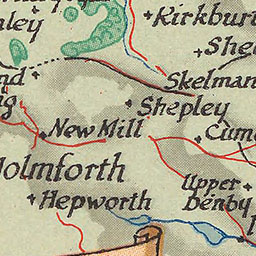 ley
Kirkburt
She
nd
Skelman
g
Shepley
New Mill
Cum
olmforth
Upper
Denby
Hepworth